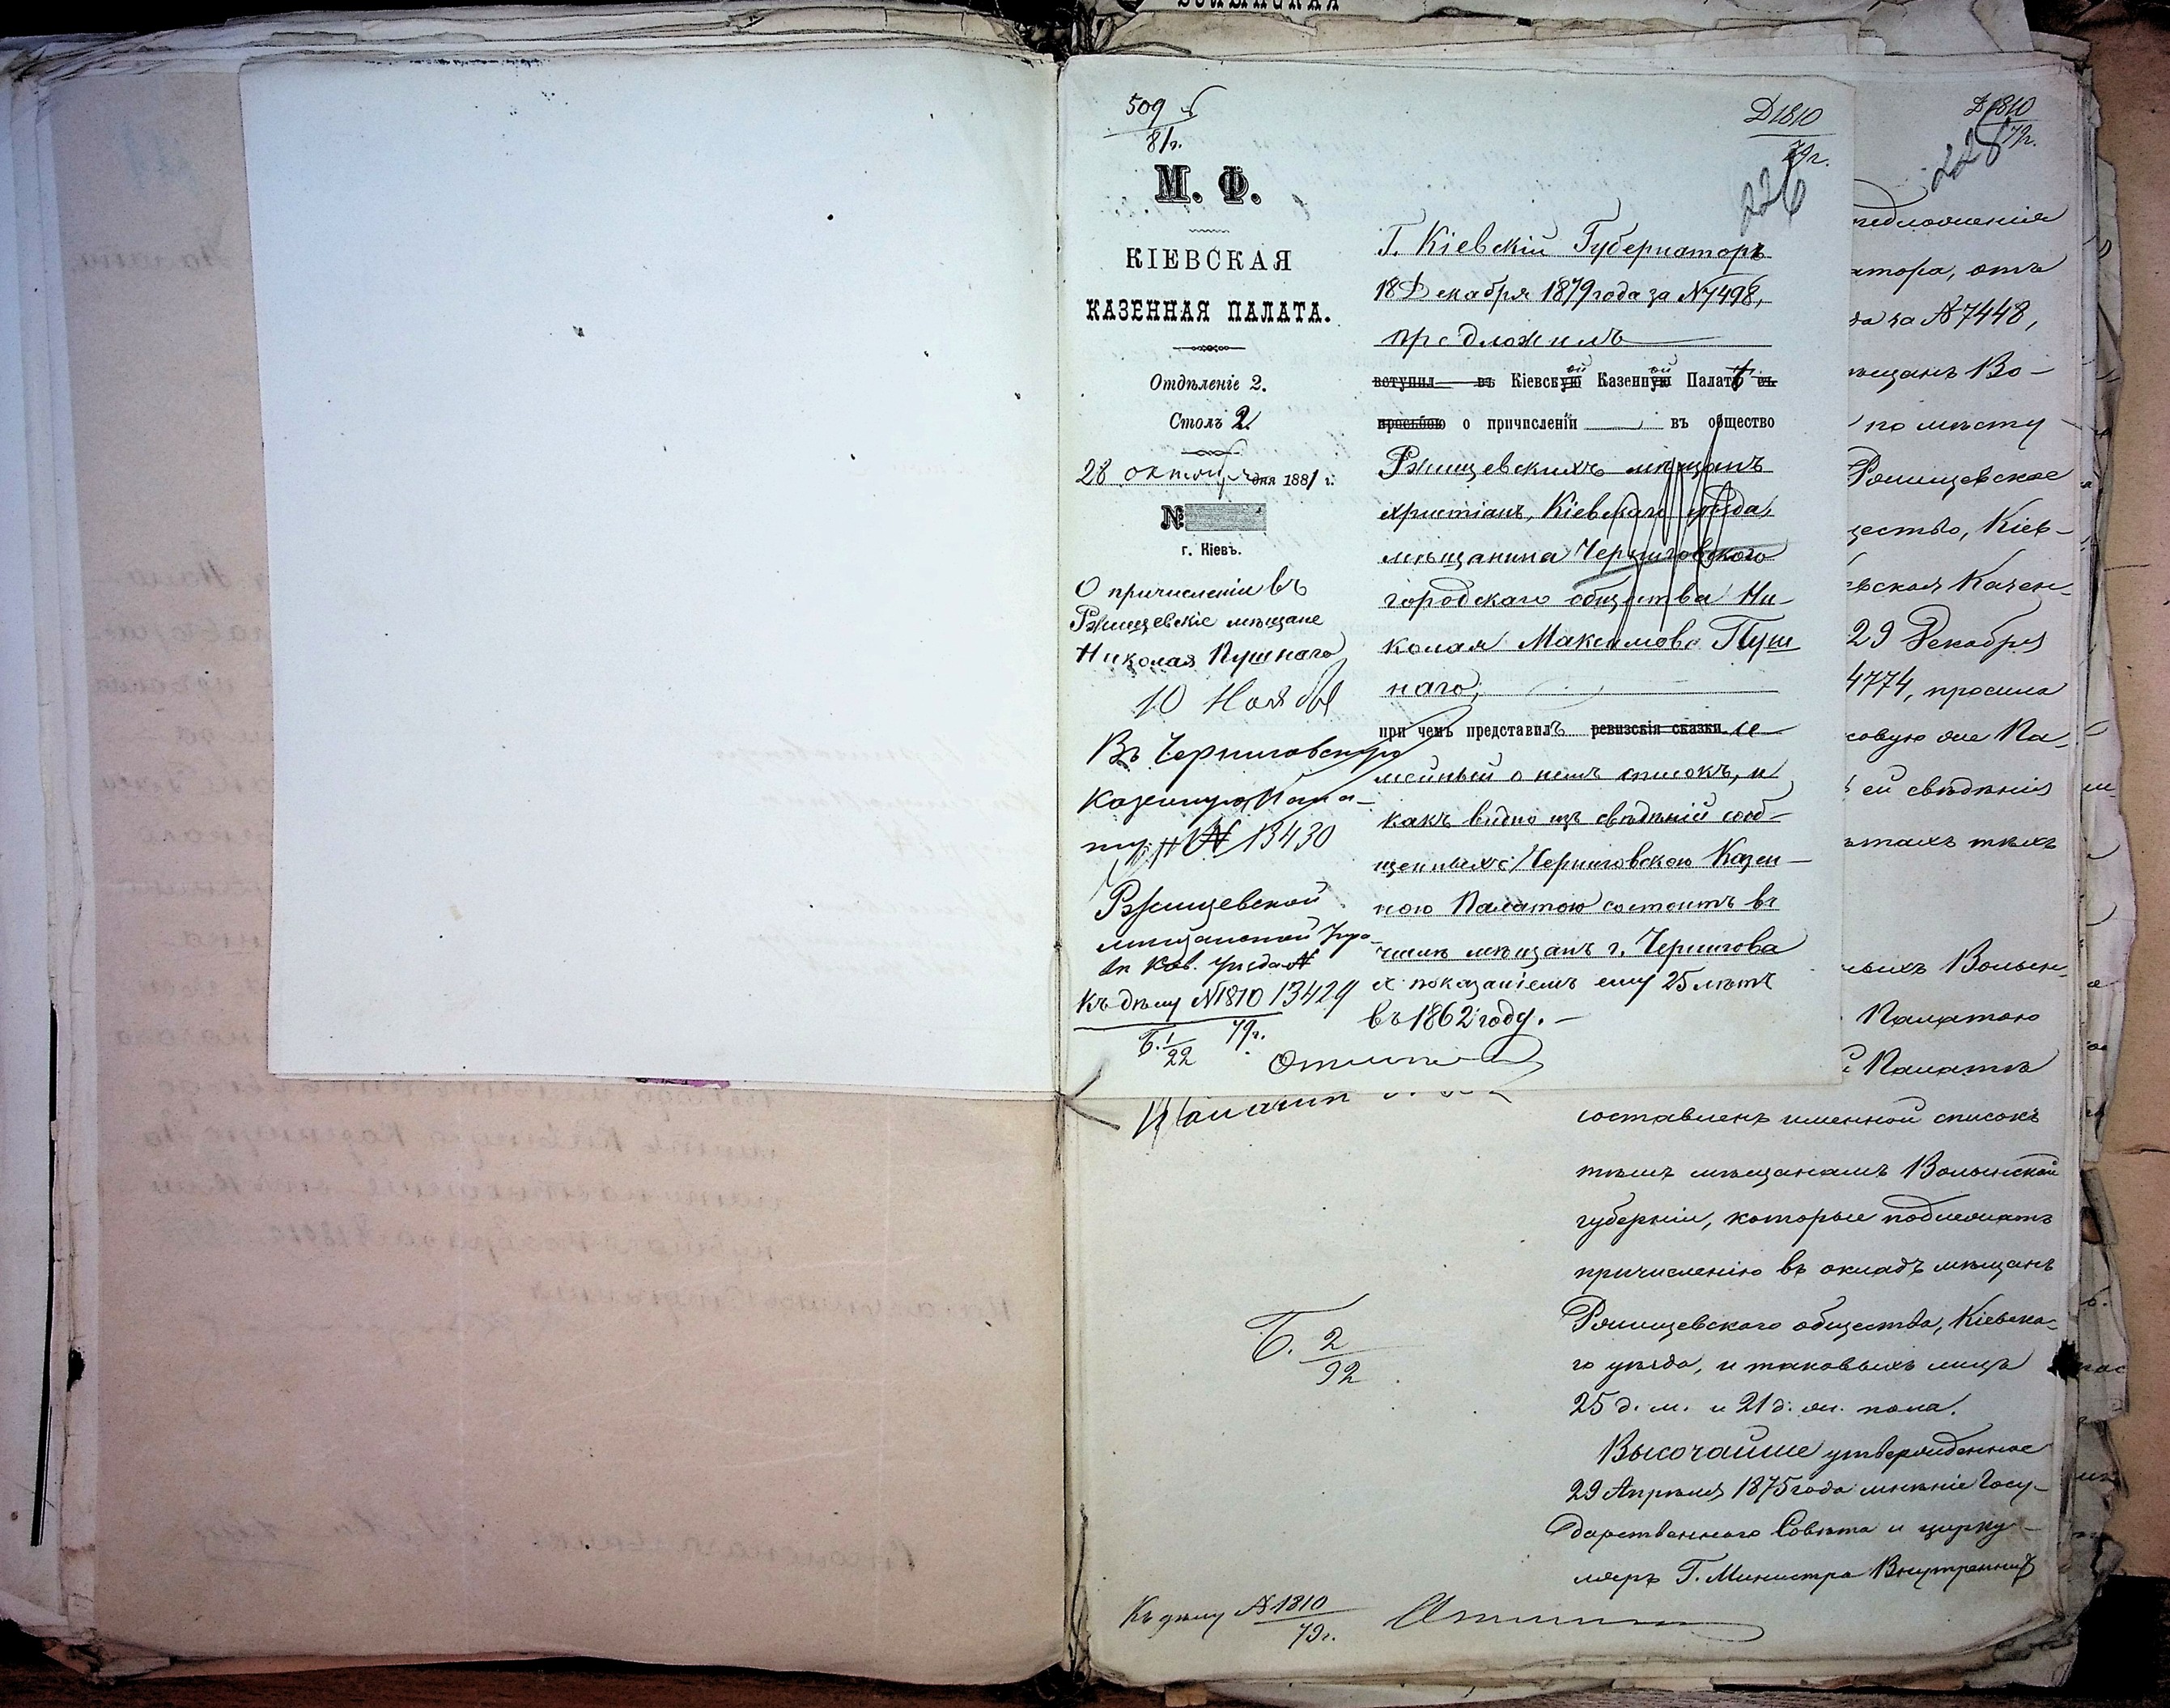 509
81г.
М. Ф.
КІЕВСКАЯ
КАЗЕННАЯ ПАЛАТА.
Отдѣленіе 2.
Столъ 2.
28 октября дня 1881 г.
№
г. Кіевъ.
О причисленіи въ
Ржищевскіе мѣщане
Николая Пушнаго
10 Ноября
Въ Черниговскую
Казенную Пала-
ту № 13430
Ржищевской
мѣщанской Упр.
Кіев. уѣзда №
Къ дѣлу №1810 13429
79г.
Б. 1/22
Д 1810
79г.
226
Г. Кіевскій Губернаторъ
18 Декабря 1879 года за №7498,
предложилъ
вступил въ Кіевской Казенной Палатѣ съ
просьбою о причисленіи въ общество
Ржищевскихъ мѣщанъ
христіанъ, Кіевскаго уѣзда,
мѣщанина Черниговского
городскаго общества Ни-
колая Максимова Пуш
наго,
при чемъ представилъ ревизскія сказки се-
мейный о немъ списокъ, и
какъ видно изъ свѣдѣній сооб-
щенныхъ Черниговскою Казен-
ною Палатою состоитъ въ
числѣ мѣщанъ г. Чернигова
съ показаніемъ ему 25 лѣтъ
въ 1862 году.
Д 1810
79г.
228
редложенія
атора, отъ
да за №7448,
мѣщанъ Во-
по мѣсту
Ржищевское
щество, Кіев-
евская Казен-
29 Декабря
4774, просила
совую же Па-
ей свѣдѣнія
тѣхъ
Волын-
Палатою
Палатѣ
составленъ именной списокъ
тѣмъ мѣщанамъ Волынской
губерніи, которые подлежатъ
причисленію въ окладъ мѣщанъ
Ржищевскаго общества, Кіевска-
го уѣзда, и таковыхъ лицъ
25 д. м. и 21 д. ж. пола.
Высочайше утвержденное
29 Апрѣля 1875 года мнѣніе Госу-
дарственнаго Совѣта и цирку-
ляръ Г. Министра Внутреннихъ
Б. 2/92
Къ дѣлу №1810
79г.